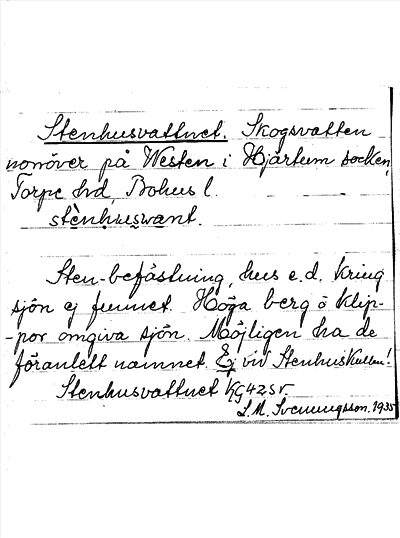 Stenhusvattnet. Skogsvatten
norröver på Westen i Hjärtum socken,
Torpe hd, Bohus l.
stènhu̱swant.
Sten-befästning, hus e.d. kring
sjön ej funnet. Höga berg o klip-
-por omgiva sjön. Möjligen ha de
föranlett namnet. Ej viv Stenhuskullen!
Stenhusvattnet Kg42sv.
S. M. Svenungsson. 1935